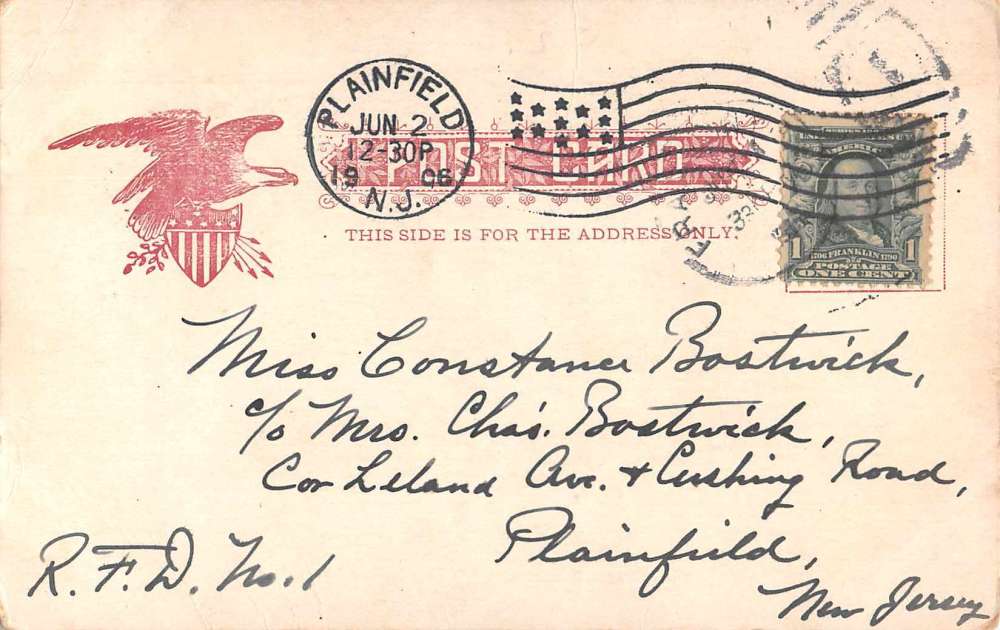 PLAINFIELD
JUN 2
12-30P
1906
N.J.
POST CARD
THIS SIDE IS FOR THE ADDRESS ONLY.
1706 FRANKLIN 1790
1 POSTAGE 1
ONE CENT
Miss Constance Bostwick,
c/o Mrs. Chas. Bostwick,
Cor Leland Ave. + Cushing Road,
Plainfield,
R.F.D. No. 1
New Jersey